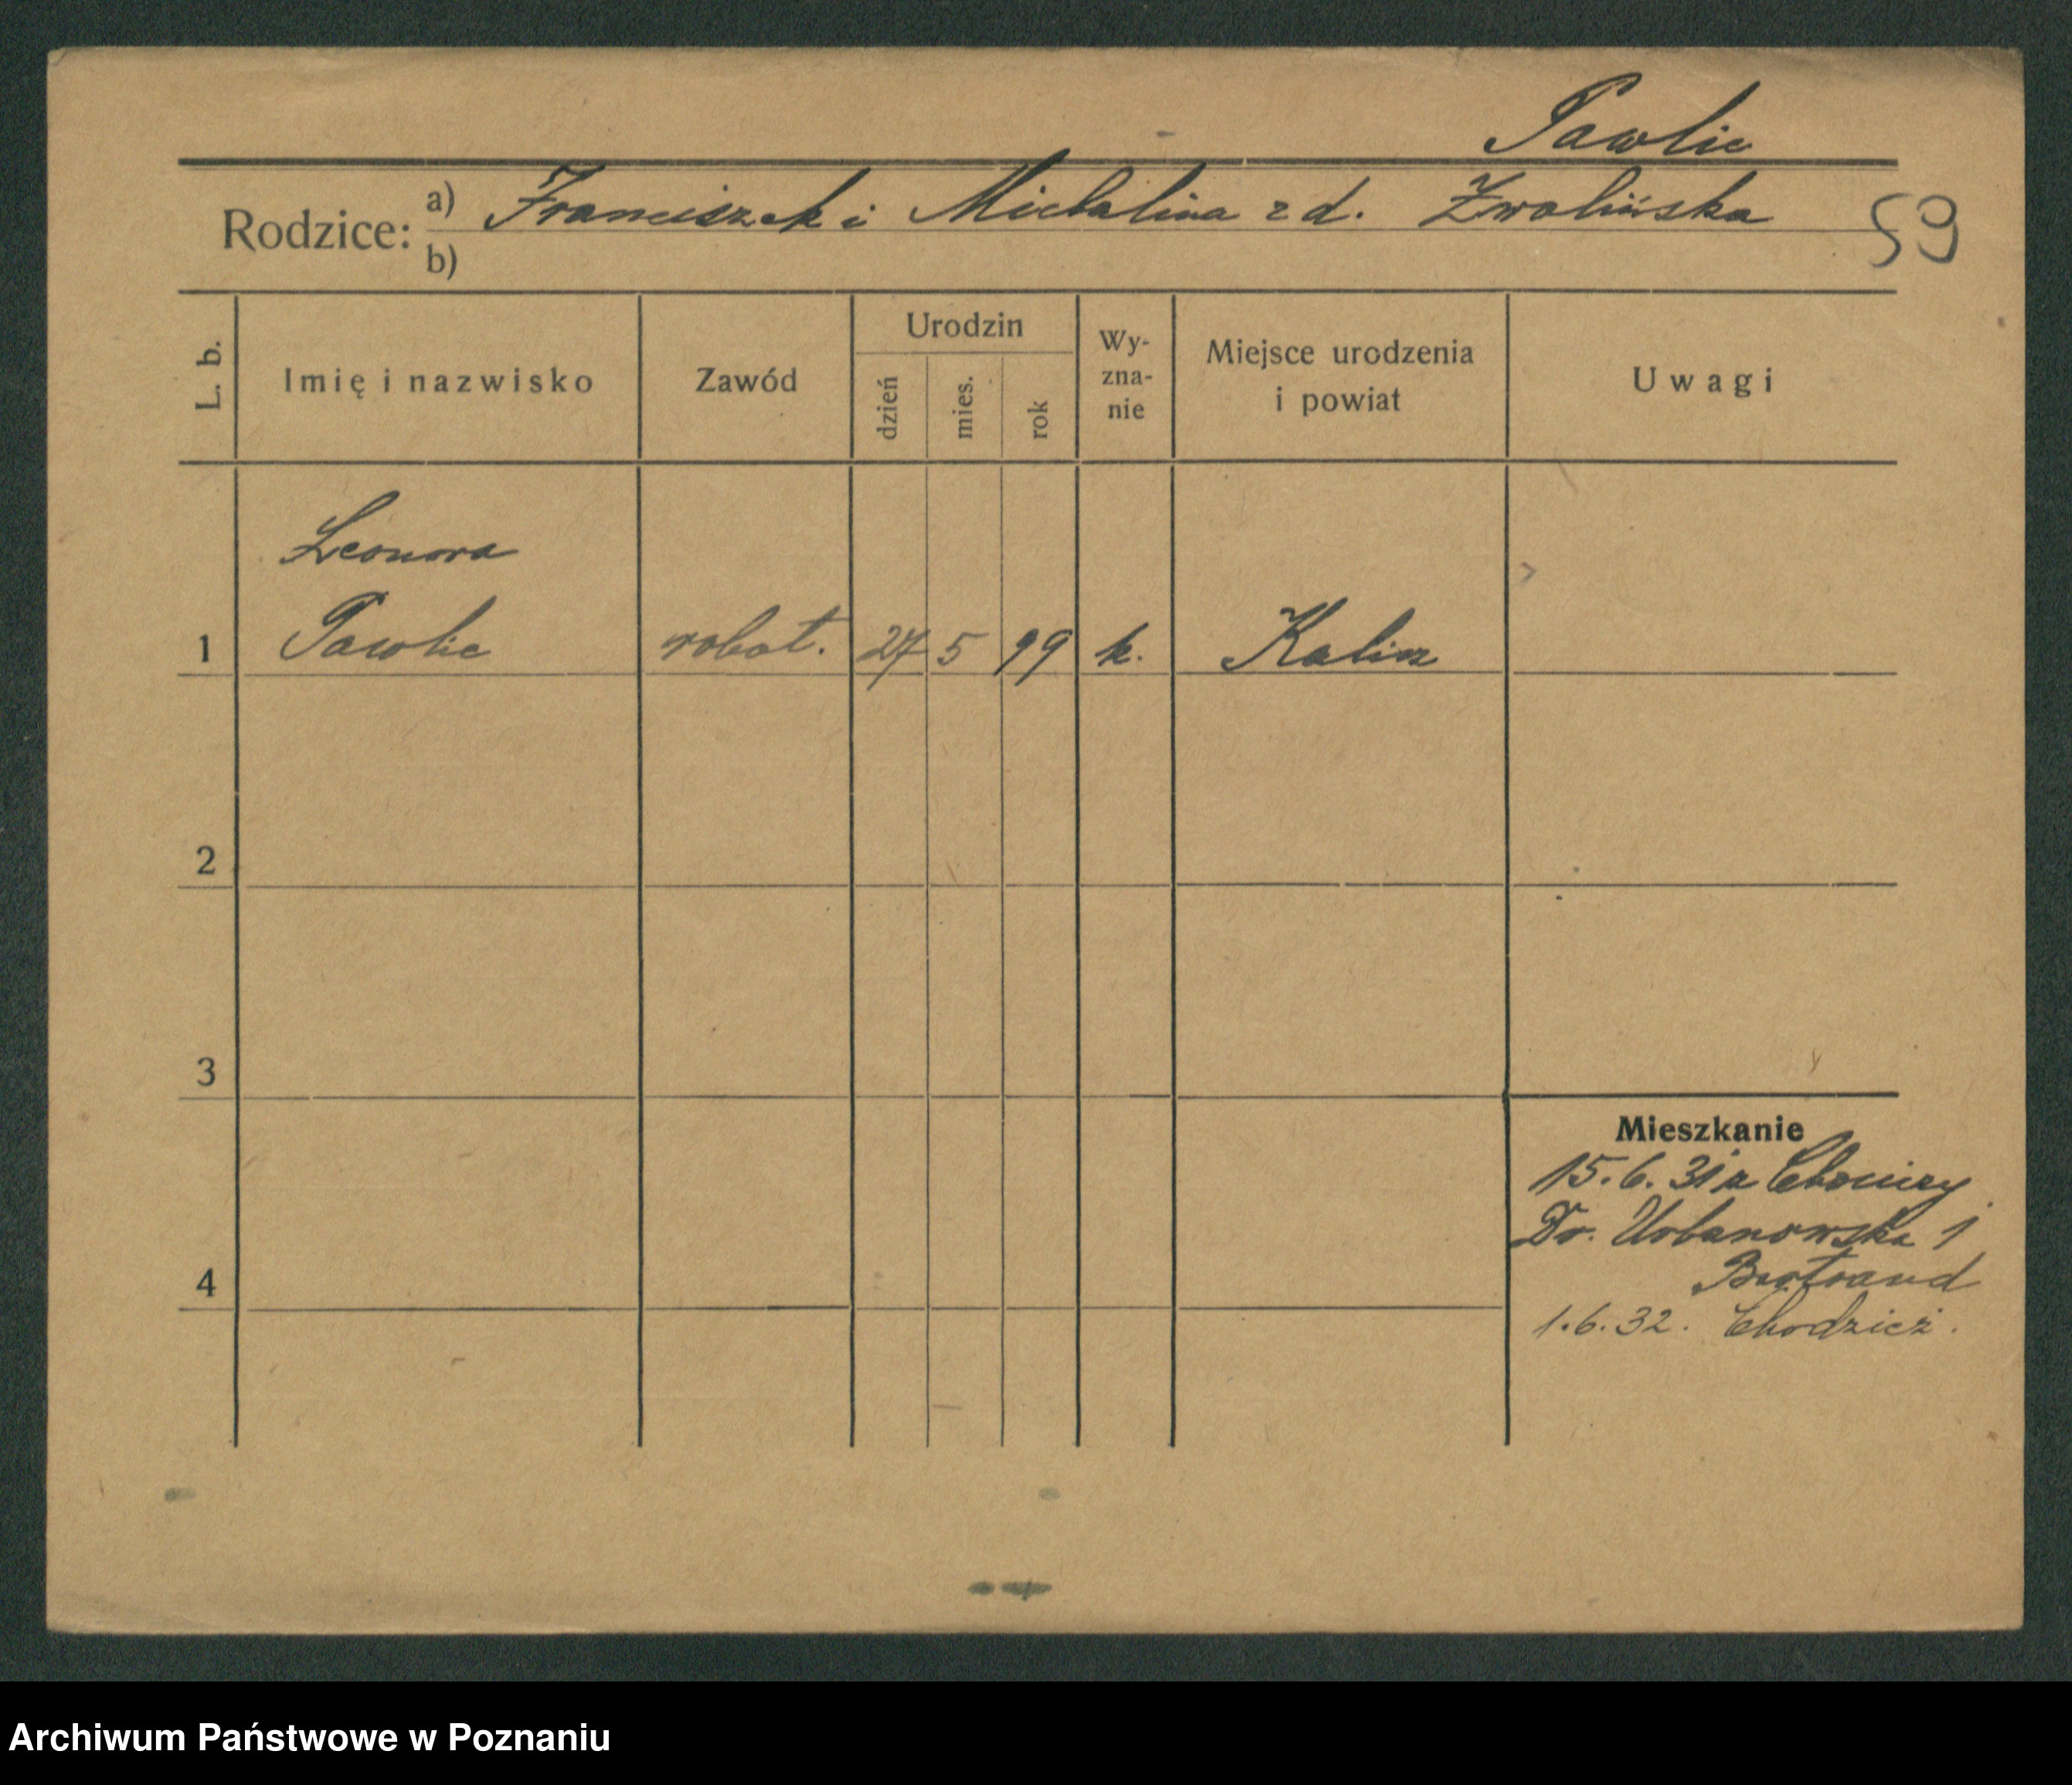 Pawlic
Rodzice: a) Franciszek i Michalina z d. Zwolińska
b)
59
L. b.
Imię i nazwisko
Zawód
Urodzin
dzień
mies.
rok
Wy-
zna-
nie
Miejsce urodzenia
i powiat
Uwagi
Leonora
1 Pawlic robot. 27 5 99 k. Kalisz
2
3
4
Mieszkanie
15.6.31 z
Dr. Urbanowska 1
Bertrand
1.6.32. Chodzież.
Archiwum Państwowe w Poznaniu